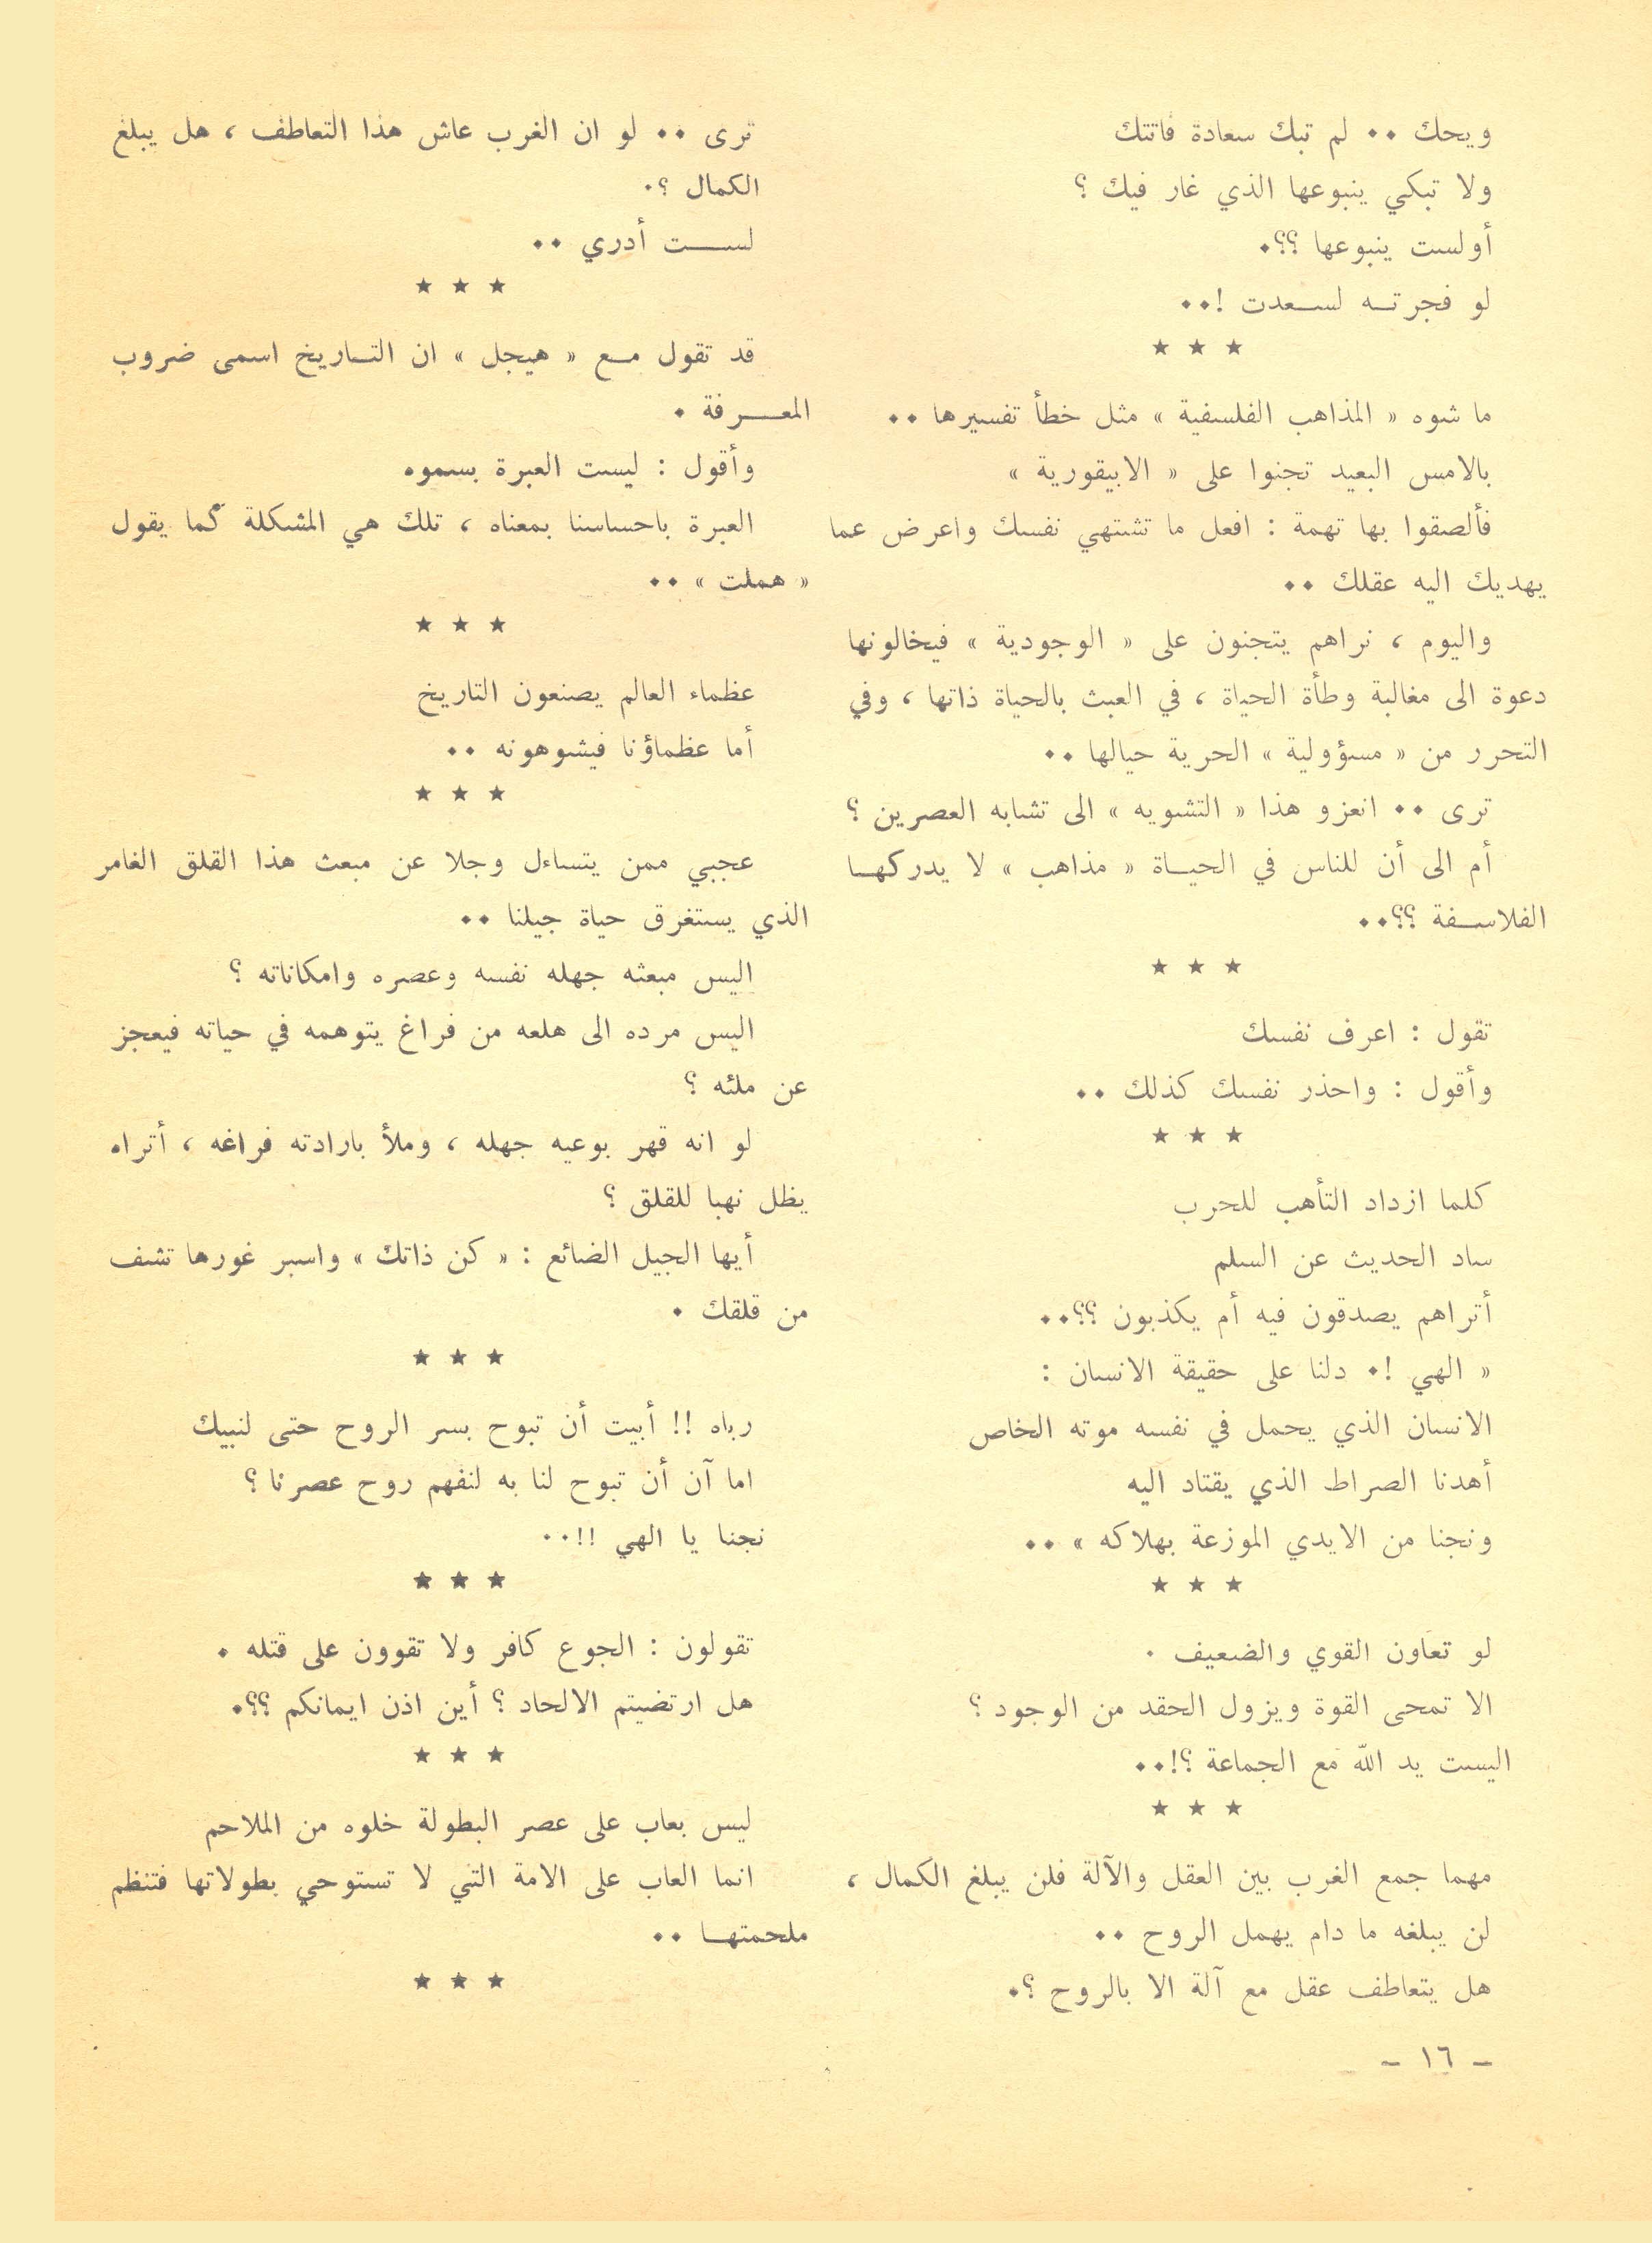 ويحك ٠٠ لم تبك سعادة فاتتك
ولا تبكي ينبوعها الذي غار فيك ؟
أولست ينبوعها ؟؟٠
لو فجرتـه لسـعدت !٠٠
★ ★ ★
ما شوه « المذاهب الفلسفية » مثل خطأ تفسيرها ٠٠
بالامس البعيد تجنوا على « الابيقورية »
فألصقوا بها تهمة : افعل ما تشتهي نفسك واعرض عما
يهديك اليه عقلك ٠٠
واليوم ، نراهم يتجنون على « الوجودية » فيخالونها
دعوة الى مغالبة وطأة الحياة ، في العبث بالحياة ذاتها ، وفي
التحرر من « مسؤولية » الحرية حيالها ٠٠
ترى ٠٠ انعزو هذا « التشويه » الى تشابه العصرين ؟
أم الى أن للناس في الحيـاة « مذاهب » لا يدركهـا
الفلاسـفة ؟؟٠٠
★ ★ ★
تقول : اعرف نفسك
وأقول : واحذر نفسك كذلك ٠٠
★ ★ ★
كلما ازداد التأهب للحرب
ساد الحديث عن السلم
أتراهم يصدقون فيه أم يكذبون ؟؟٠٠
« الهي !٠ دلنا على حقيقة الانسان :
الانسان الذي يحمل في نفسه موته الخاص
أهدنا الصراط الذي يقتاد اليه
ونجنا من الايدي الموزعة بهلاكه » ٠٠
★ ★ ★
لو تعاون القوي والضعيف ٠
الا تمحى القوة ويزول الحقد من الوجود ؟
اليست يد الله مع الجماعة ؟!٠٠
★ ★ ★
مهما جمع الغرب بين العقل والآلة فلن يبلغ الكمال ،
لن يبلغه ما دام يهمل الروح ٠٠
هل يتعاطف عقل مع آلة الا بالروح ؟٠
ترى ٠٠ لو ان الغرب عاش هذا التعاطف ، هل يبلغ
الكمال ؟٠
لســـت أدري ٠٠
★ ★ ★
قد تقول مـع « هيجل » ان التـاريخ اسمى ضروب
المعـــرفة ٠
وأقول : ليست العبرة بسموه
العبرة باحساسنا بمعناه ، تلك هي المشكلة كما يقول
« هملت » ٠٠
★ ★ ★
عظماء العالم يصنعون التاريخ
أما عظماؤنا فيشوهونه ٠٠
★ ★ ★
عجبي ممن يتساءل وجلا عن مبعث هذا القلق الغامر
الذي يستغرق حياة جيلنا ٠٠
اليس مبعثه جهله نفسه وعصره وامكاناته ؟
اليس مرده الى هلعه من فراغ يتوهمه في حياته فيعجز
عن ملئه ؟
لو انه قهر بوعيه جهله ، وملأ بارادته فراغه ، أتراه
يظل نهبا للقلق ؟
أيها الجيل الضائع : « كن ذاتك » واسبر غورها تشف
من قلقك ٠
★ ★ ★
رباه !! أبيت أن تبوح بسر الروح حتى لنبيك
اما آن أن تبوح لنا به لنفهم روح عصرنا ؟
نجنا يا الهي !!٠٠
★ ★ ★
تقولون : الجوع كافر ولا تقوون على قتله ٠
هل ارتضيتم الالحاد ؟ أين اذن ايمانكم ؟؟٠
★ ★ ★
ليس بعاب على عصر البطولة خلوه من الملاحم
انما العاب على الامة التي لا تستوحي بطولاتها فتنظم
ملحمتهـا ٠٠
★ ★ ★
– ١٦ –